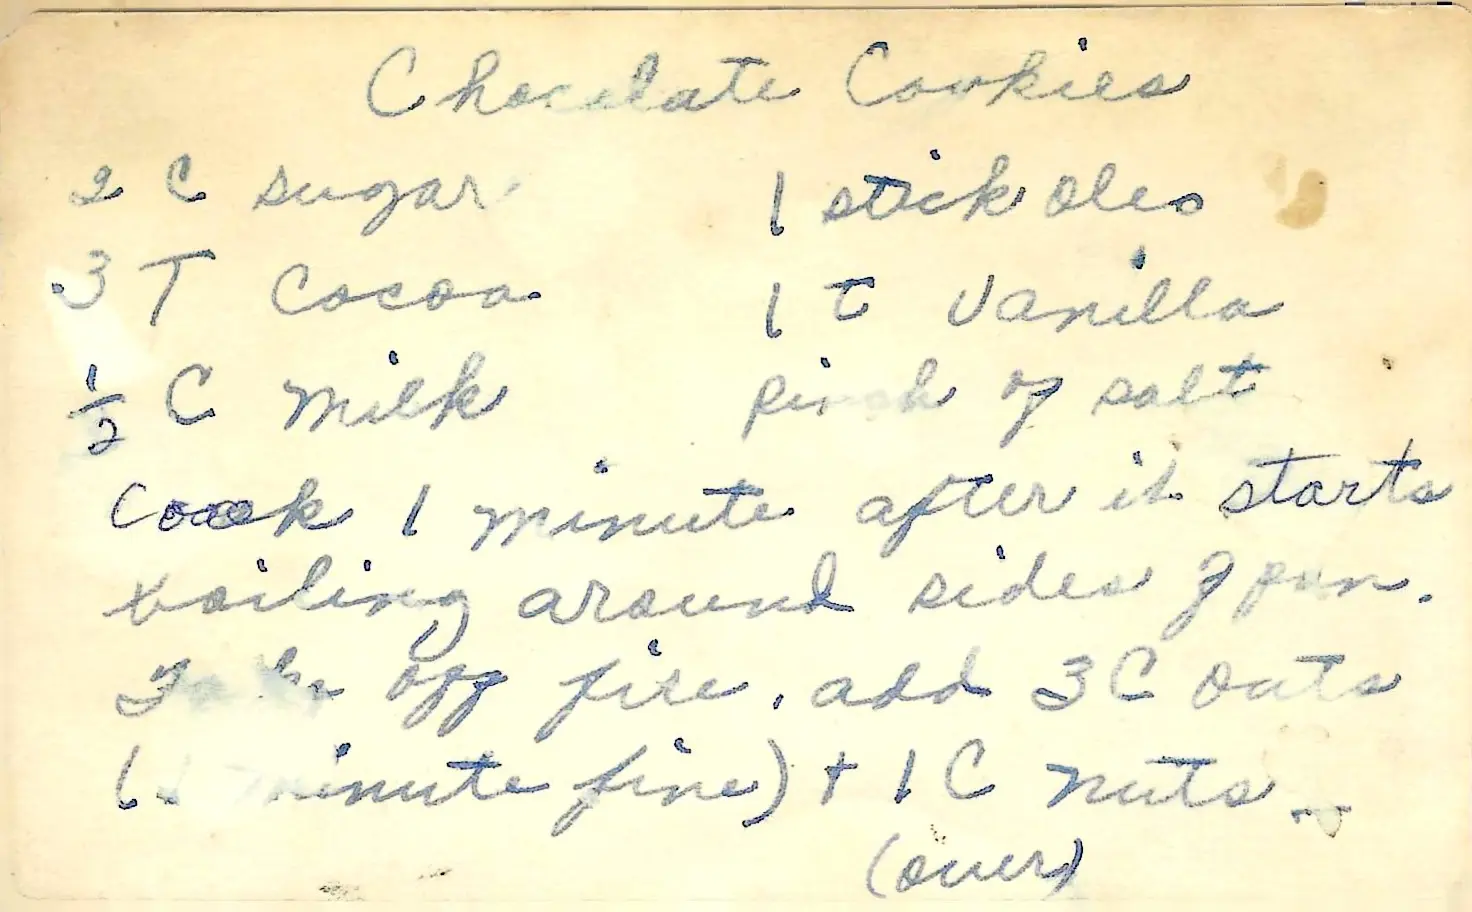 Chocolate Cookies
2 C sugar 1 stick oleo
3 T cocoa 1 t vanilla
1/2 C milk pinch of salt
Cook 1 minute after it starts
boiling around sides of pan.
Take off fire, add 3 C oats
(1 minute fine) + 1 C nuts.
(over)